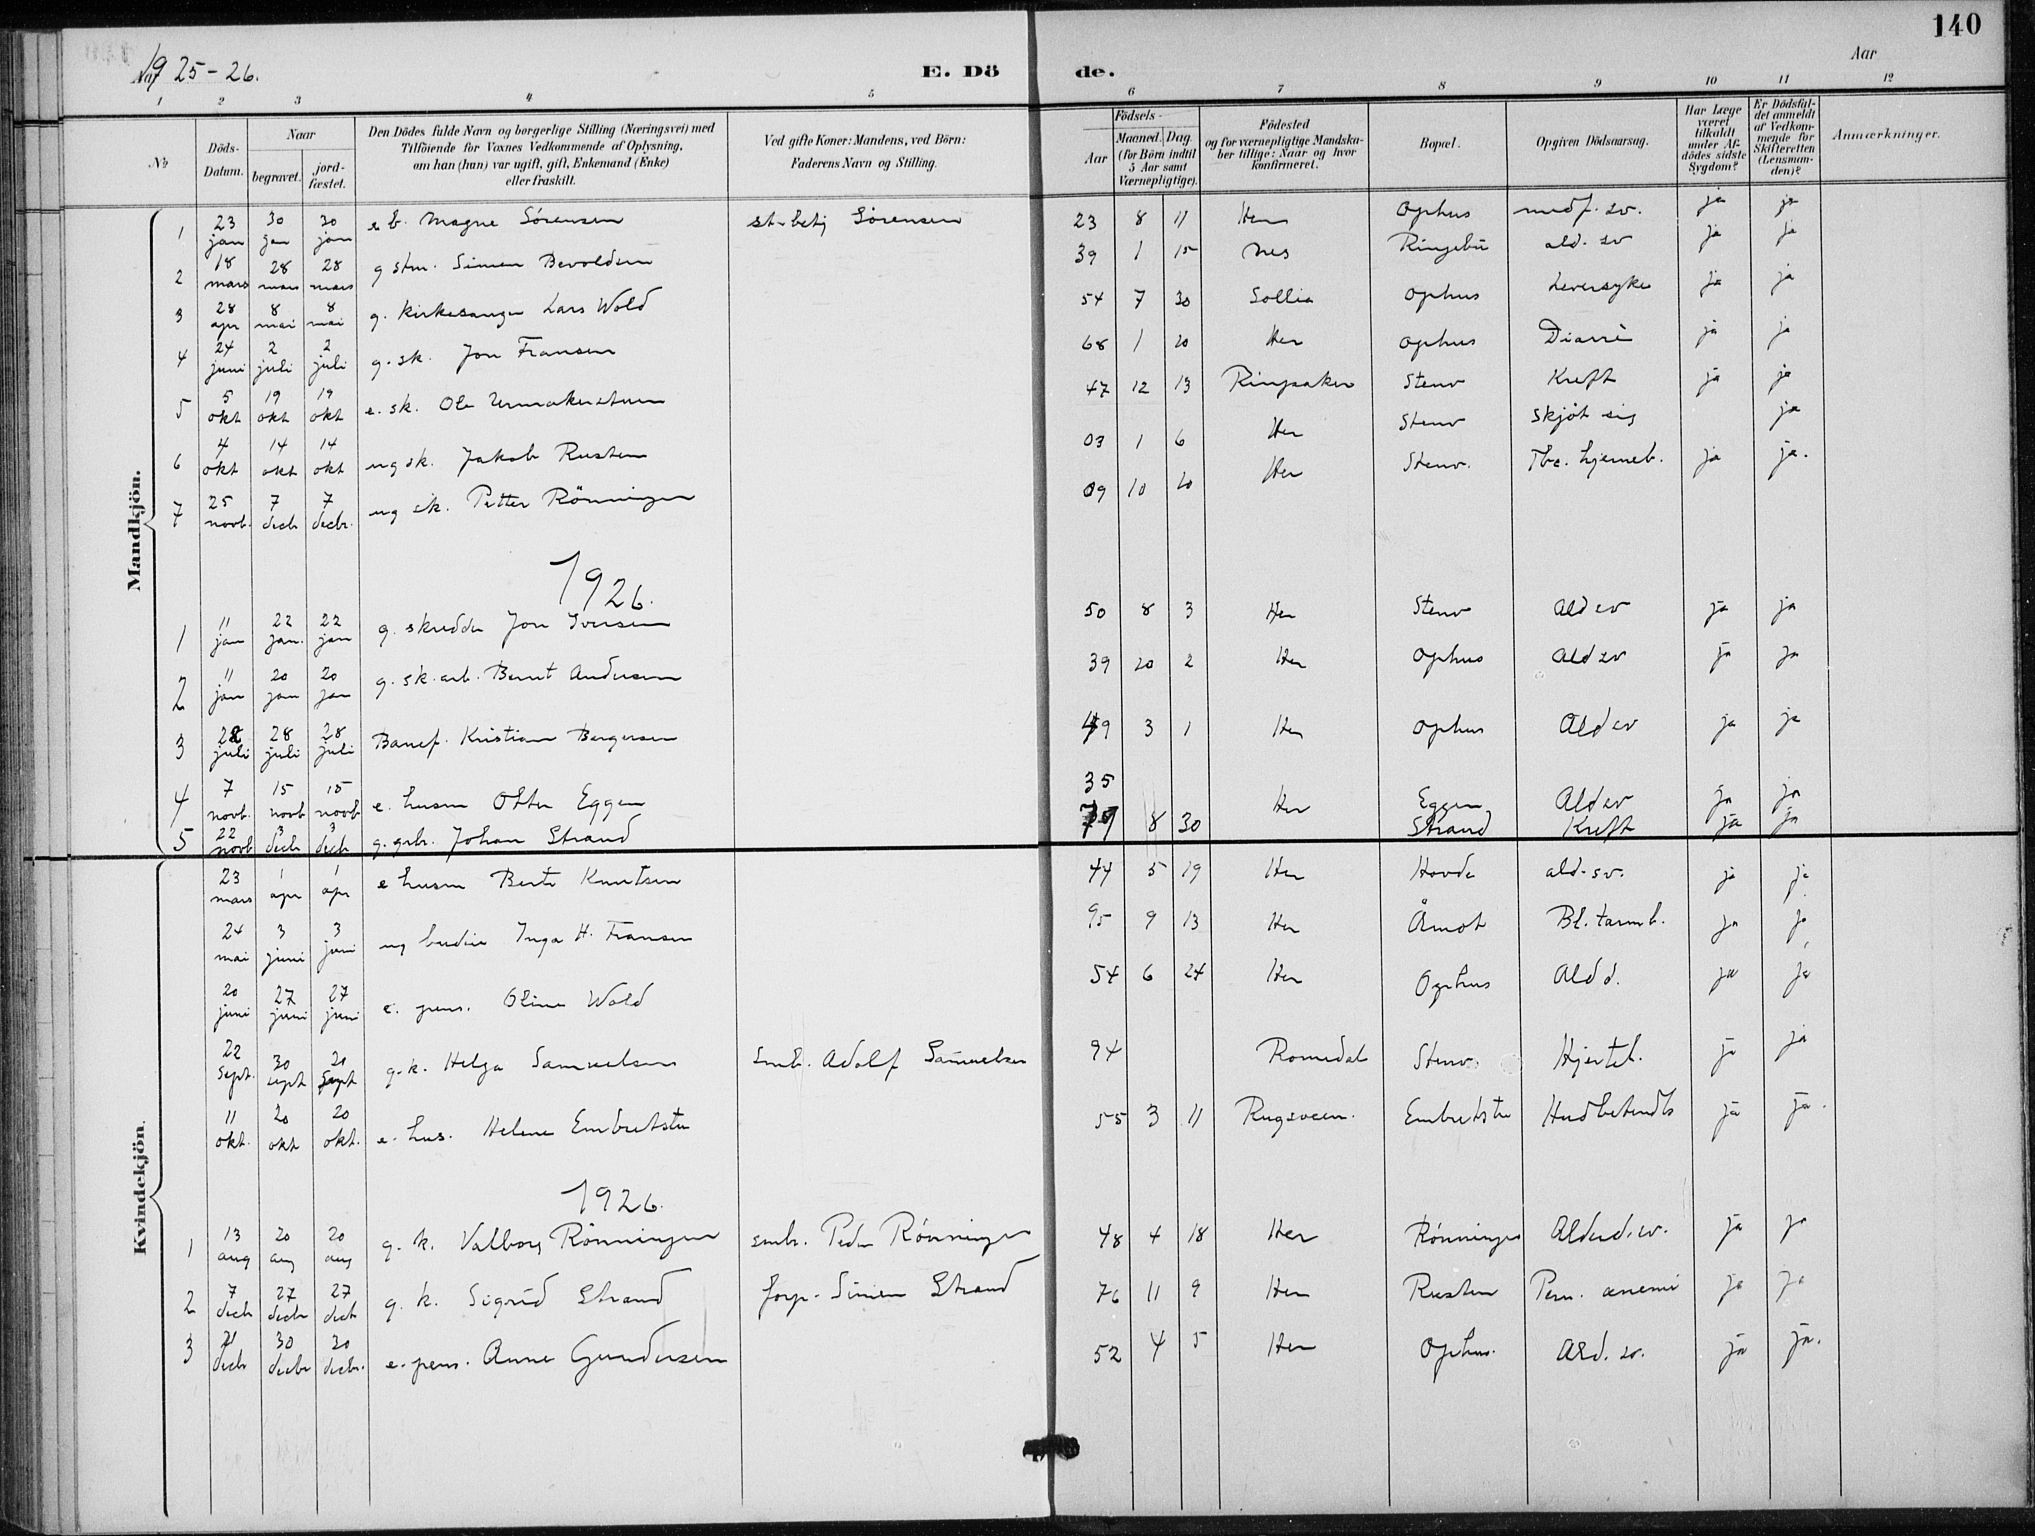 140
1925-26.
E. Döde.
Aar
1 2 3 4 5 6 7 8 9 10 11 12
No
Döds-Datum.
Naar
begravet.
jord-fæstet.
Den Dödes fulde Navn og borgerlige Stilling (Næringsvei) med Tilföiende for Voxnes Vedkommende af Oplysning, om han (hun) var ugift, gift, Enkemand (Enke) eller fraskilt.
Ved gifte Koner: Mandens, ved Börn: Faderens Navn og Stilling.
Födsels-
Aar
Maaned. Dag.
(for Börn indtil 5 Aar samt Værnepligtige).
Födested og for værnepligtige Mandskaber tillige: Naar og hvor konfirmeret.
Bopæl.
Opgiven Dödsaarsag.
Har Læge været tilkaldt under Afdödes sidste Sygdom?
Er Dödsfaldet anmeldt af Vedkommende for Skifteretten (Lensmanden)?
Anmærkninger.
Mandkjön.
1 23 jan 30 jan 30 jan e b. Magne Sörensen st.betj Sörensen 23 8 11 Her Ophus medf. sv. ja ja
2 18 mars 28 mars 28 mars g stm. Simen Bevolden 39 1 15 Nes Ringebu ald. sv ja ja
3 28 apr 8 mai 8 mai g. kirkesanger Lars Wold 54 7 30 Sollia Ophus Leversyke ja ja
4 24 juni 2 juli 2 juli g. sk. Jon Fransen 68 1 20 Her Ophus Diarré ja ja
5 5 okt 19 okt 19 okt e. sk. Ole 47 12 13 Ringsaker Stenv Kreft ja ja
6 4 okt 14 okt 14 okt ug sk. Jakob Rusten 03 1 6 Her Stenv skjöt sig ja
7 25 novb. 7 decb 7 decbr. ug sk. Petter Rönningen 09 10 20 Her Stenv. Tbc. hjerneb. ja ja.
1926.
1 11 jan 22 jan. 22 jan g. skredder Jon Iversen 50 8 3 Her Stenv Ald sv ja ja
2 11 jan 20 jan 20 jan g. sk.arb. Bernt Andersen 39 20 2 Her Ophus Ald sv ja ja
3 28 juli 28 juli 28 juli Banef. Kristian Bergersen 49 3 1 Her Ophus Ald sv ja ja
4 7 novb. 15 novb 15 novb e. husm Otter Eggen 35 Her Eggen Ald sv ja ja
5 22 novb 3 decb 3 decb g. grbr. Johan Strand 8 30 Strand Kreft ja ja
Kvindekjön.
23 mars 1 apr 1 apr e husm Berte Knutsen 44 5 19 Her Hovde ald. sv. ja ja
24 mai 3 juni 3 juni ug budeie Inga H. Fransen 95 9 13 Her Åmot Bl. tarmb. ja ja
20 juni 27 juni 27 juni e. pens. Oline Wold 54 6 24 Her Ophus Ald d. ja ja
22 sept. 30 sept 20 sept g. k. Helga Samuelsen smb. Adolf Samuelsen 94 Romedal Stenv. Hjertel. ja ja
11 okt. 20 okt 20 okt. e. hus. Helene Embretstu 55 3 11 Embretstu ja ja.
1926.
1 13 aug 20 aug 20 aug g. k. Valborg Rönningen smbr. Peder Rönningen 48 4 18 Her Rönningen Alderd. sv. ja ja
2 7 decb 27 decbr 27 decb g. k. Sigrid Strand forp. Simen Strand 76 11 9 Her Rusten Pern. anemi ja ja
3 21 decb 30 decbr 30 decbr. e. pens. Anne Gundersen 52 4 5 Her Ophus. Ald. sv. ja ja.